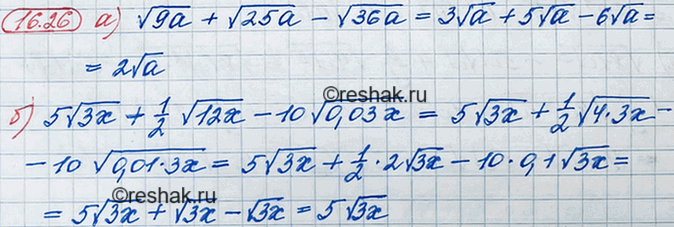 16.26 а) √9a + √25a − √36a = 3√a + 5√a − 6√a =
= 2√a
©reshak.ru
б) 5√3x + 1/2 √12x − 10√0,03x = 5√3x + 1/2 √4·3x −
− 10 √0,01·3x = 5√3x + 1/2 · 2√3x − 10·0,1√3x =
©reshak.ru
= 5√3x + √3x − √3x = 5√3x